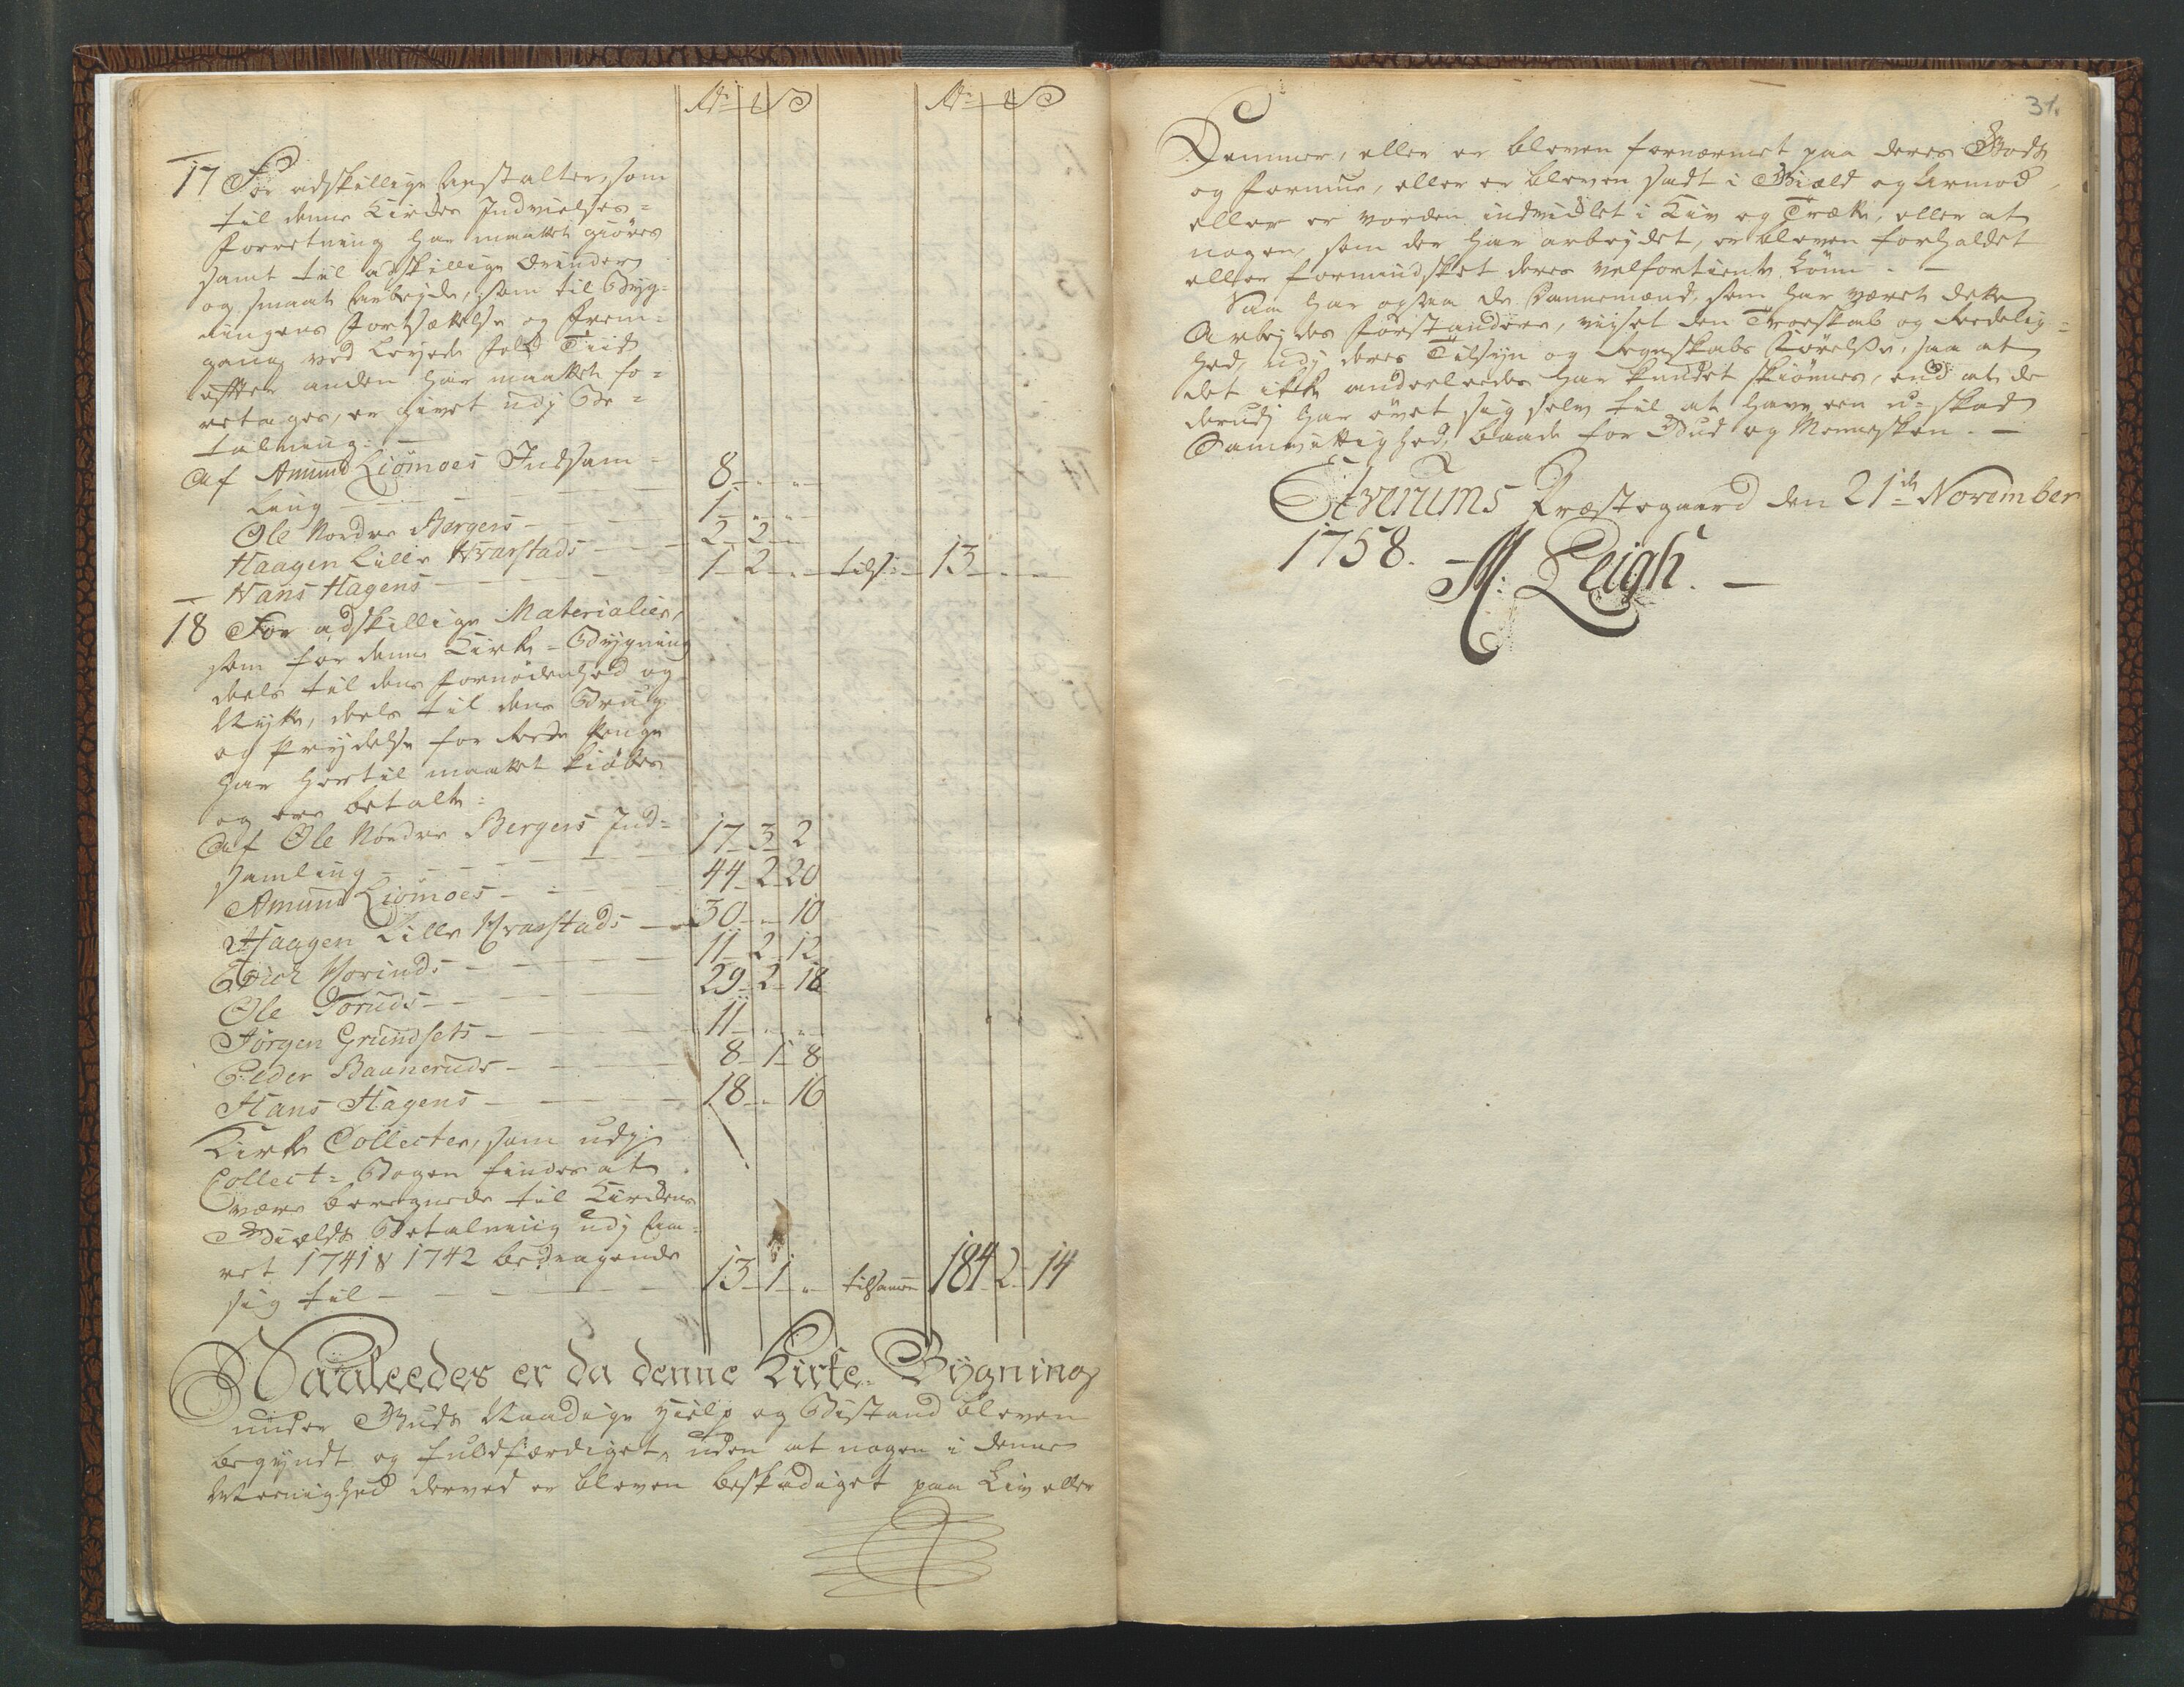 17 For adskillige Anstalter, som
til denne Kirkes Indvielses-
Forretning har maattet giöres
samt til adskillige Ærinder
og smaat Arbeyde, som til Byg-
ningens Fortsættelse og Frem-
gang ved Leyede Folk Tiid
efter anden har maattet fo-
retages, er givet udj Be-
talning: —
Af Amund Liömoes Indsam-
ling — 8 — „ — „
Ole Nordre Bergers — 1 — „ — „
Haagen Lille Hvarstads — 2 — 2 — „
Hans Hagens — 1 — 2 — „ — tils: — 13 — „ — „
18 For adskillige Materialier,
som for denne Kirke-Bygning
deels til dens Fornödenhed og
Nytte, deels til dens Brug
og Prydelse for rede Penge
har hertil maattet kiöbes
og ere betalte:
Af Ole Nordre Bergers Ind-
samling — 17 — 3 — 2
Amund Liömoes — 44 — 2 — 20
Haagen Lille Hvarstads — 30 — „ — 10
Erich Horinds — 11 — 2 — 12
Ole Toruds — 29 — 2 — 18
Jörgen Grundsets — 11 — „ — „
Peder Bauneruds — 8 — 1 — 8
Hans Hagens — 18 — „ — 16
Kirke Collecter, som udj
Collect-Bogen findes at
være beregnede til Kirkens
Giælds Betalning udj Aa-
ret 1741 & 1742 bedragende
sig til — 13 — 1 — „ tilsamen 184 — 2 — 14
Saaleedes er da denne Kirke-Bygning
under Guds Naadige Hielp og Bistand bleven
begyndt og fuldfærdiget, uden at nogen i denne
Meenighed derved er bleven beskadiget paa Liv eller
31.
Lemmer, eller er bleven fornærmet paa deres Gods
og Formue, eller er bleven sadt i Giæld og Armod,
eller er vorden indvidlet i Kiv og Trætte, eller at
nogen, som der har arbeydet, er bleven forholdet
eller formindsket deres velfortiente Lönn. —
Saa har ogsaa de Dannemænd, som har været dette
Arbeydes Forstandere, viiset den Troeskab og Reedelig-
hed, udj deres Tilsyn og Regnskabs Förelse, saa at
det ikke anderleedes har kundet skiönnes, end at de
derudj har övet sig selv til at have een u-skad
Samvittighed, baade for Gud og Mennesken. —
Elverums Præstegaard den 21de November
1758. — M: Leigh. —